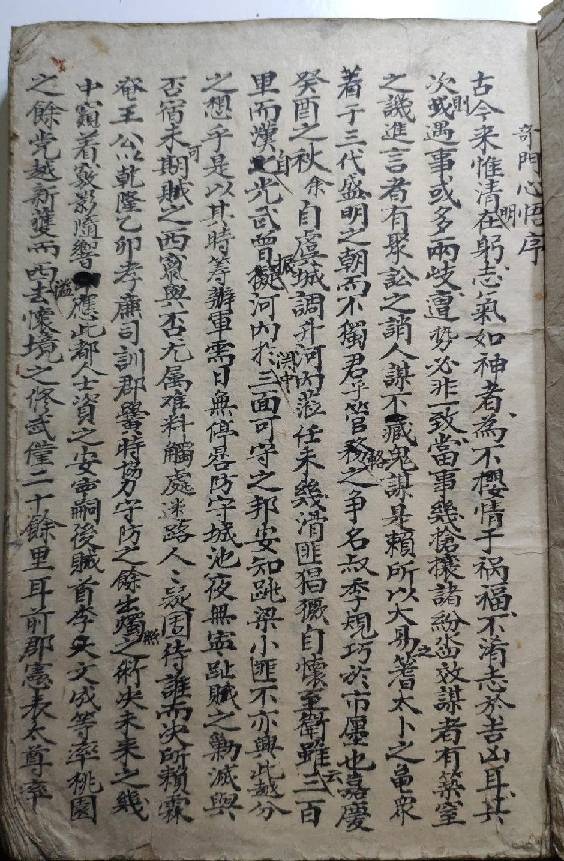 奇門心悟序
明
古今来惟清在躬志氣如神者為不攖情于祸福不淆志於吉凶耳其
次或遇事或多兩歧遭 必非一致當事幾搶攘諸紛畓效謀者有築室
則
之譏進言者有聚訟之誚人謀不臧鬼謀是賴所以大易著太卜之亀衆
之
著于三代盛明之朝而不獨君子管務之争名叔季規巧於市厘也嘉慶
輅
癸酉之秋余自虞城調升河内蒞任未幾滑匪猖獗自懷至衛雖三百
云
里而漢之光武曾擬河内於三面可守之邦安知跳梁小匪不亦興此越分
自
據
之想乎是以其時筹辦軍需日無停晷防守城池夜無 趾賊之勦滅與
否宿未期賊之西竄與否尤属难料觸處迷路人々疑固待誰而决所賴霖
可
菴王公以乾隆乙卯孝廉司訓郡黌時協力守防之餘出燭之術决未来之幾
照
中窾着竅影随響應此都人士資之安 嗣後賊首李文成等率桃園
之餘党越新獲而西去懷境之修武僅二十餘里耳前郡憲表太尊率
滋